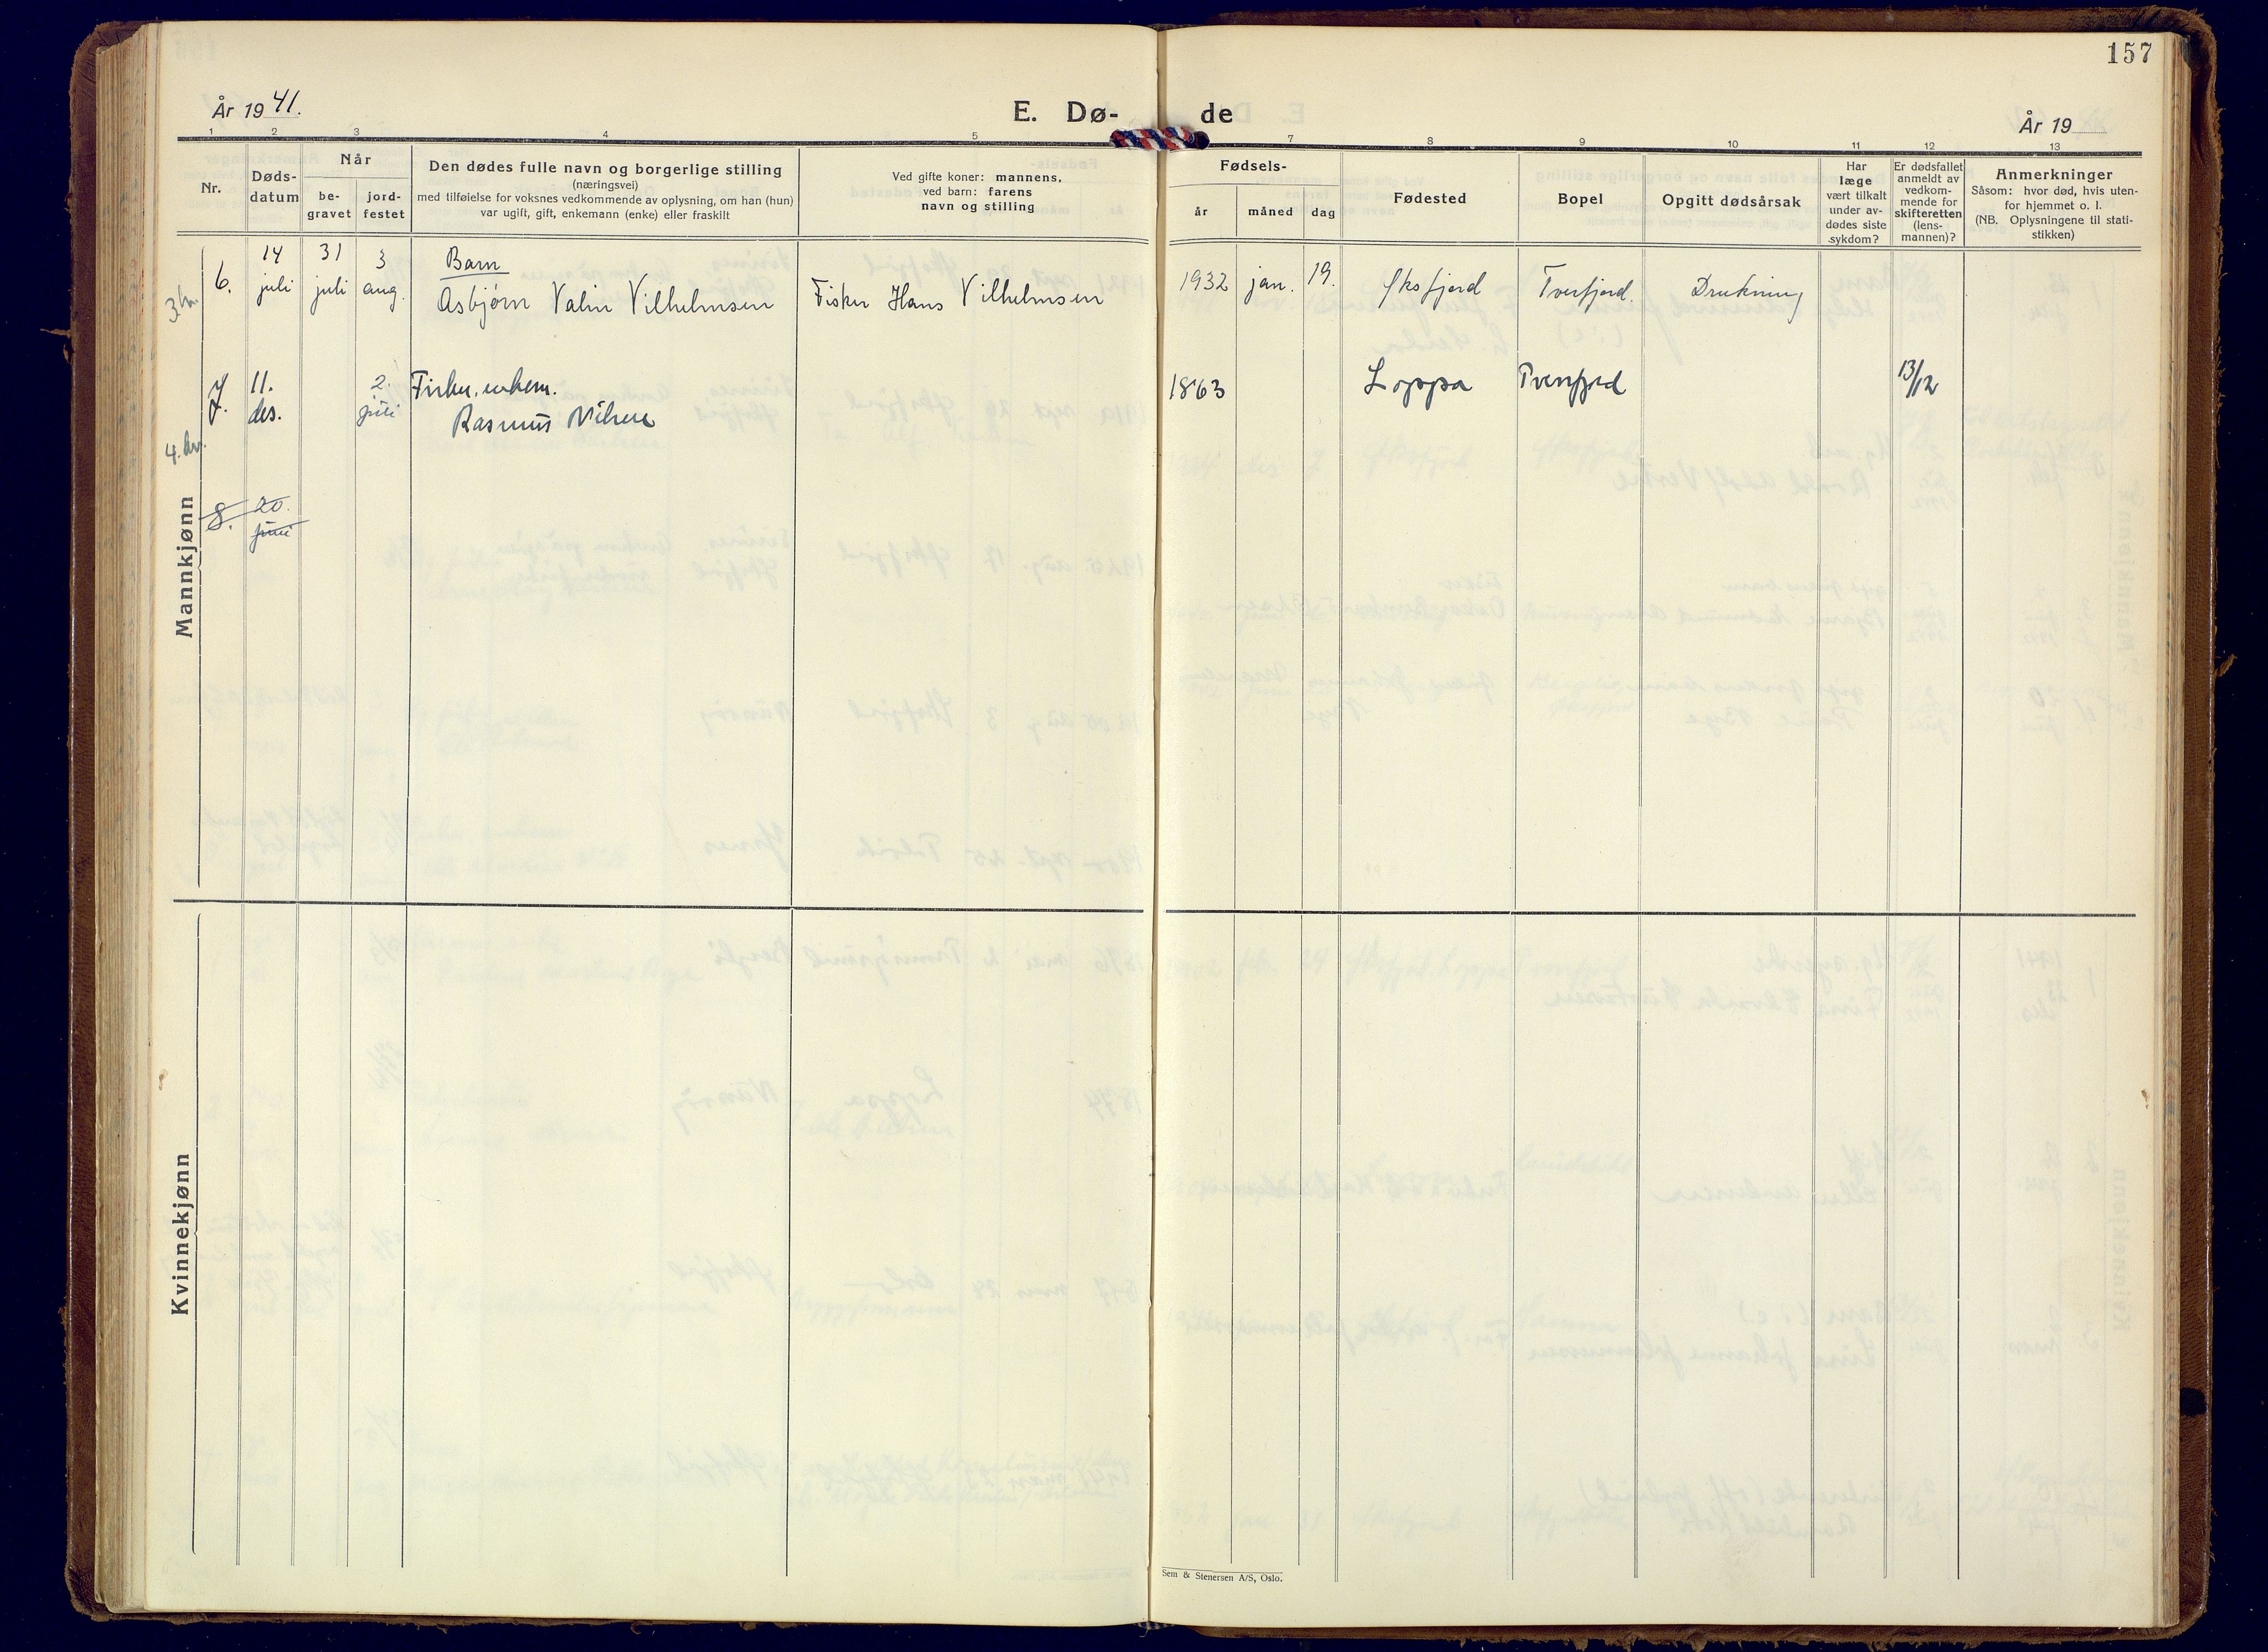 157
År 1941.
E. Dø-
de
År 19
1 2 3 4 5 7 8 9 10 11 12 13
Nr.
Døds-
datum
Når
be-
gravet
jord-
festet
Den dødes fulle navn og borgerlige stilling
(næringsvei)
med tilføielse for voksnes vedkommende av oplysning, om han (hun)
var ugift, gift, enkemann (enke) eller fraskilt
Ved gifte koner: mannens,
ved barn: farens
navn og stilling
Fødsels-
år
måned
dag
Fødested
Bopel
Opgitt dødsårsak
Har
læge
vært tilkalt
under av-
dødes siste
sykdom?
Er dødsfallet
anmeldt av
vedkom-
mende for
skifteretten
(lens-
mannen)?
Anmerkninger
Såsom: hvor død, hvis uten-
for hjemmet o. l.
(NB. Oplysningene til stati-
stikken)
Mannkjønn
3. kv.
6.
14
juli
31
juli
3
aug.
Barn
Asbjørn Valin Vilhelmsen
Fisker Hans Vilhelmsen
1932 jan. 19.
Øksfjord
Tverfjord.
Drukning
4. kv.
7.
11.
des.
2.
juli
Fisker, enkem.
Rasmus Nilsen
1863
Loppa
Tverrfjord
13/12
8.
20.
juni
Kvinnekjønn
Sem & Stenersen A/S, Oslo.